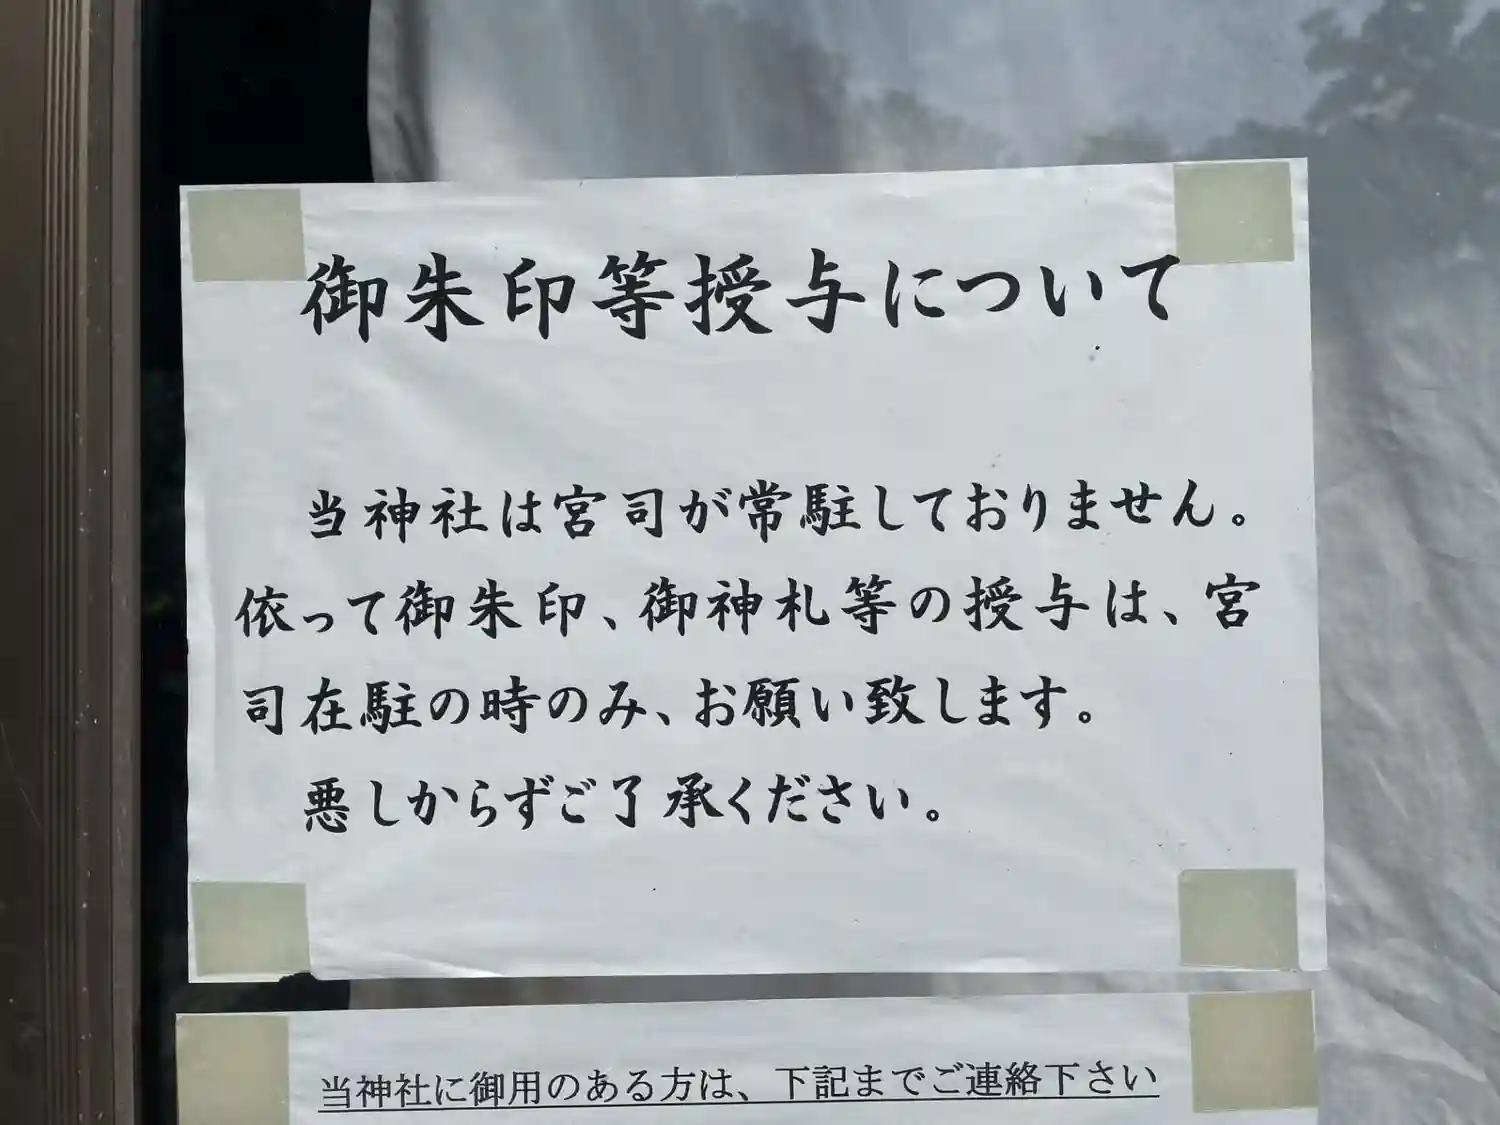 御朱印等授与について
当神社は宮司が常駐しておりません。
依って御朱印、御神札等の授与は、宮
司在駐の時のみ、お願い致します。
悪しからずご了承ください。
当神社に御用のある方は、下記までご連絡下さい